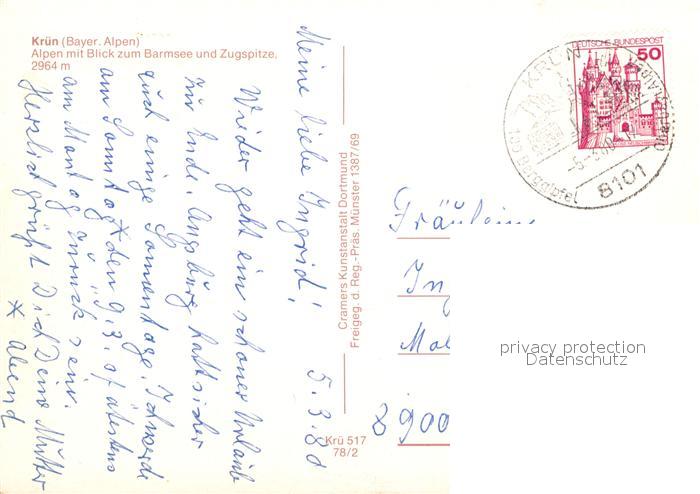 Krün (Bayer. Alpen)
Alpen mit Blick zum Barmsee und Zugspitze,
2964 m
Meine liebe Ingrid!
5.3.80
Wieder geht ein schöner Urlaub
zu Ende. Augsburg hatte sicher
auch einige Sonnentage. Ich werde
am Samstag * den 9.3. spätestens
am Montag zurück sein.
Herzlichst grüßt Dich Deine Mutter
* Abend
Cramers Kunstanstalt Dortmund
Freigeg. d. Reg.-Präs. Münster 1387/69
Krü 517
78/2
DEUTSCHE BUNDESPOST
50
KRÜN
100 Berggipfel
8101
Fräulein
In
Mol
8900
privacy protection
Datenschutz